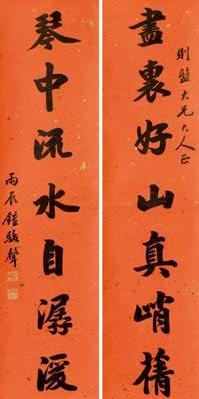 則盤大兄大人正
畫裏好山真峭蒨
琴中流水自潺湲
丙辰鍾駿聲